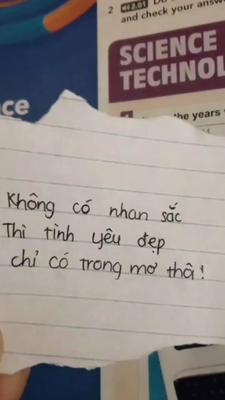 2 2.01 Do
and check your answ
SCIENCE
TECHNOL
ce
the years
Không có nhan sắc
Thì tình yêu đẹp
chỉ có trong mơ thôi!